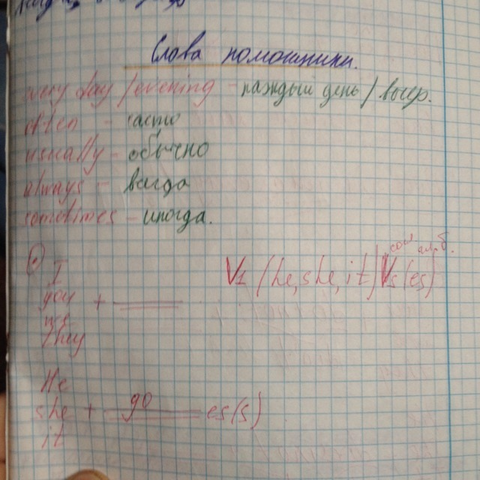 Слова помошники.
every day / evening - каждый день / вечер.
often - часто
usually - обычно
always - всегда
sometimes - иногда.
I
you + V1 (he, she, it) Vs (es)
we
They
He
she + go es(s)
it